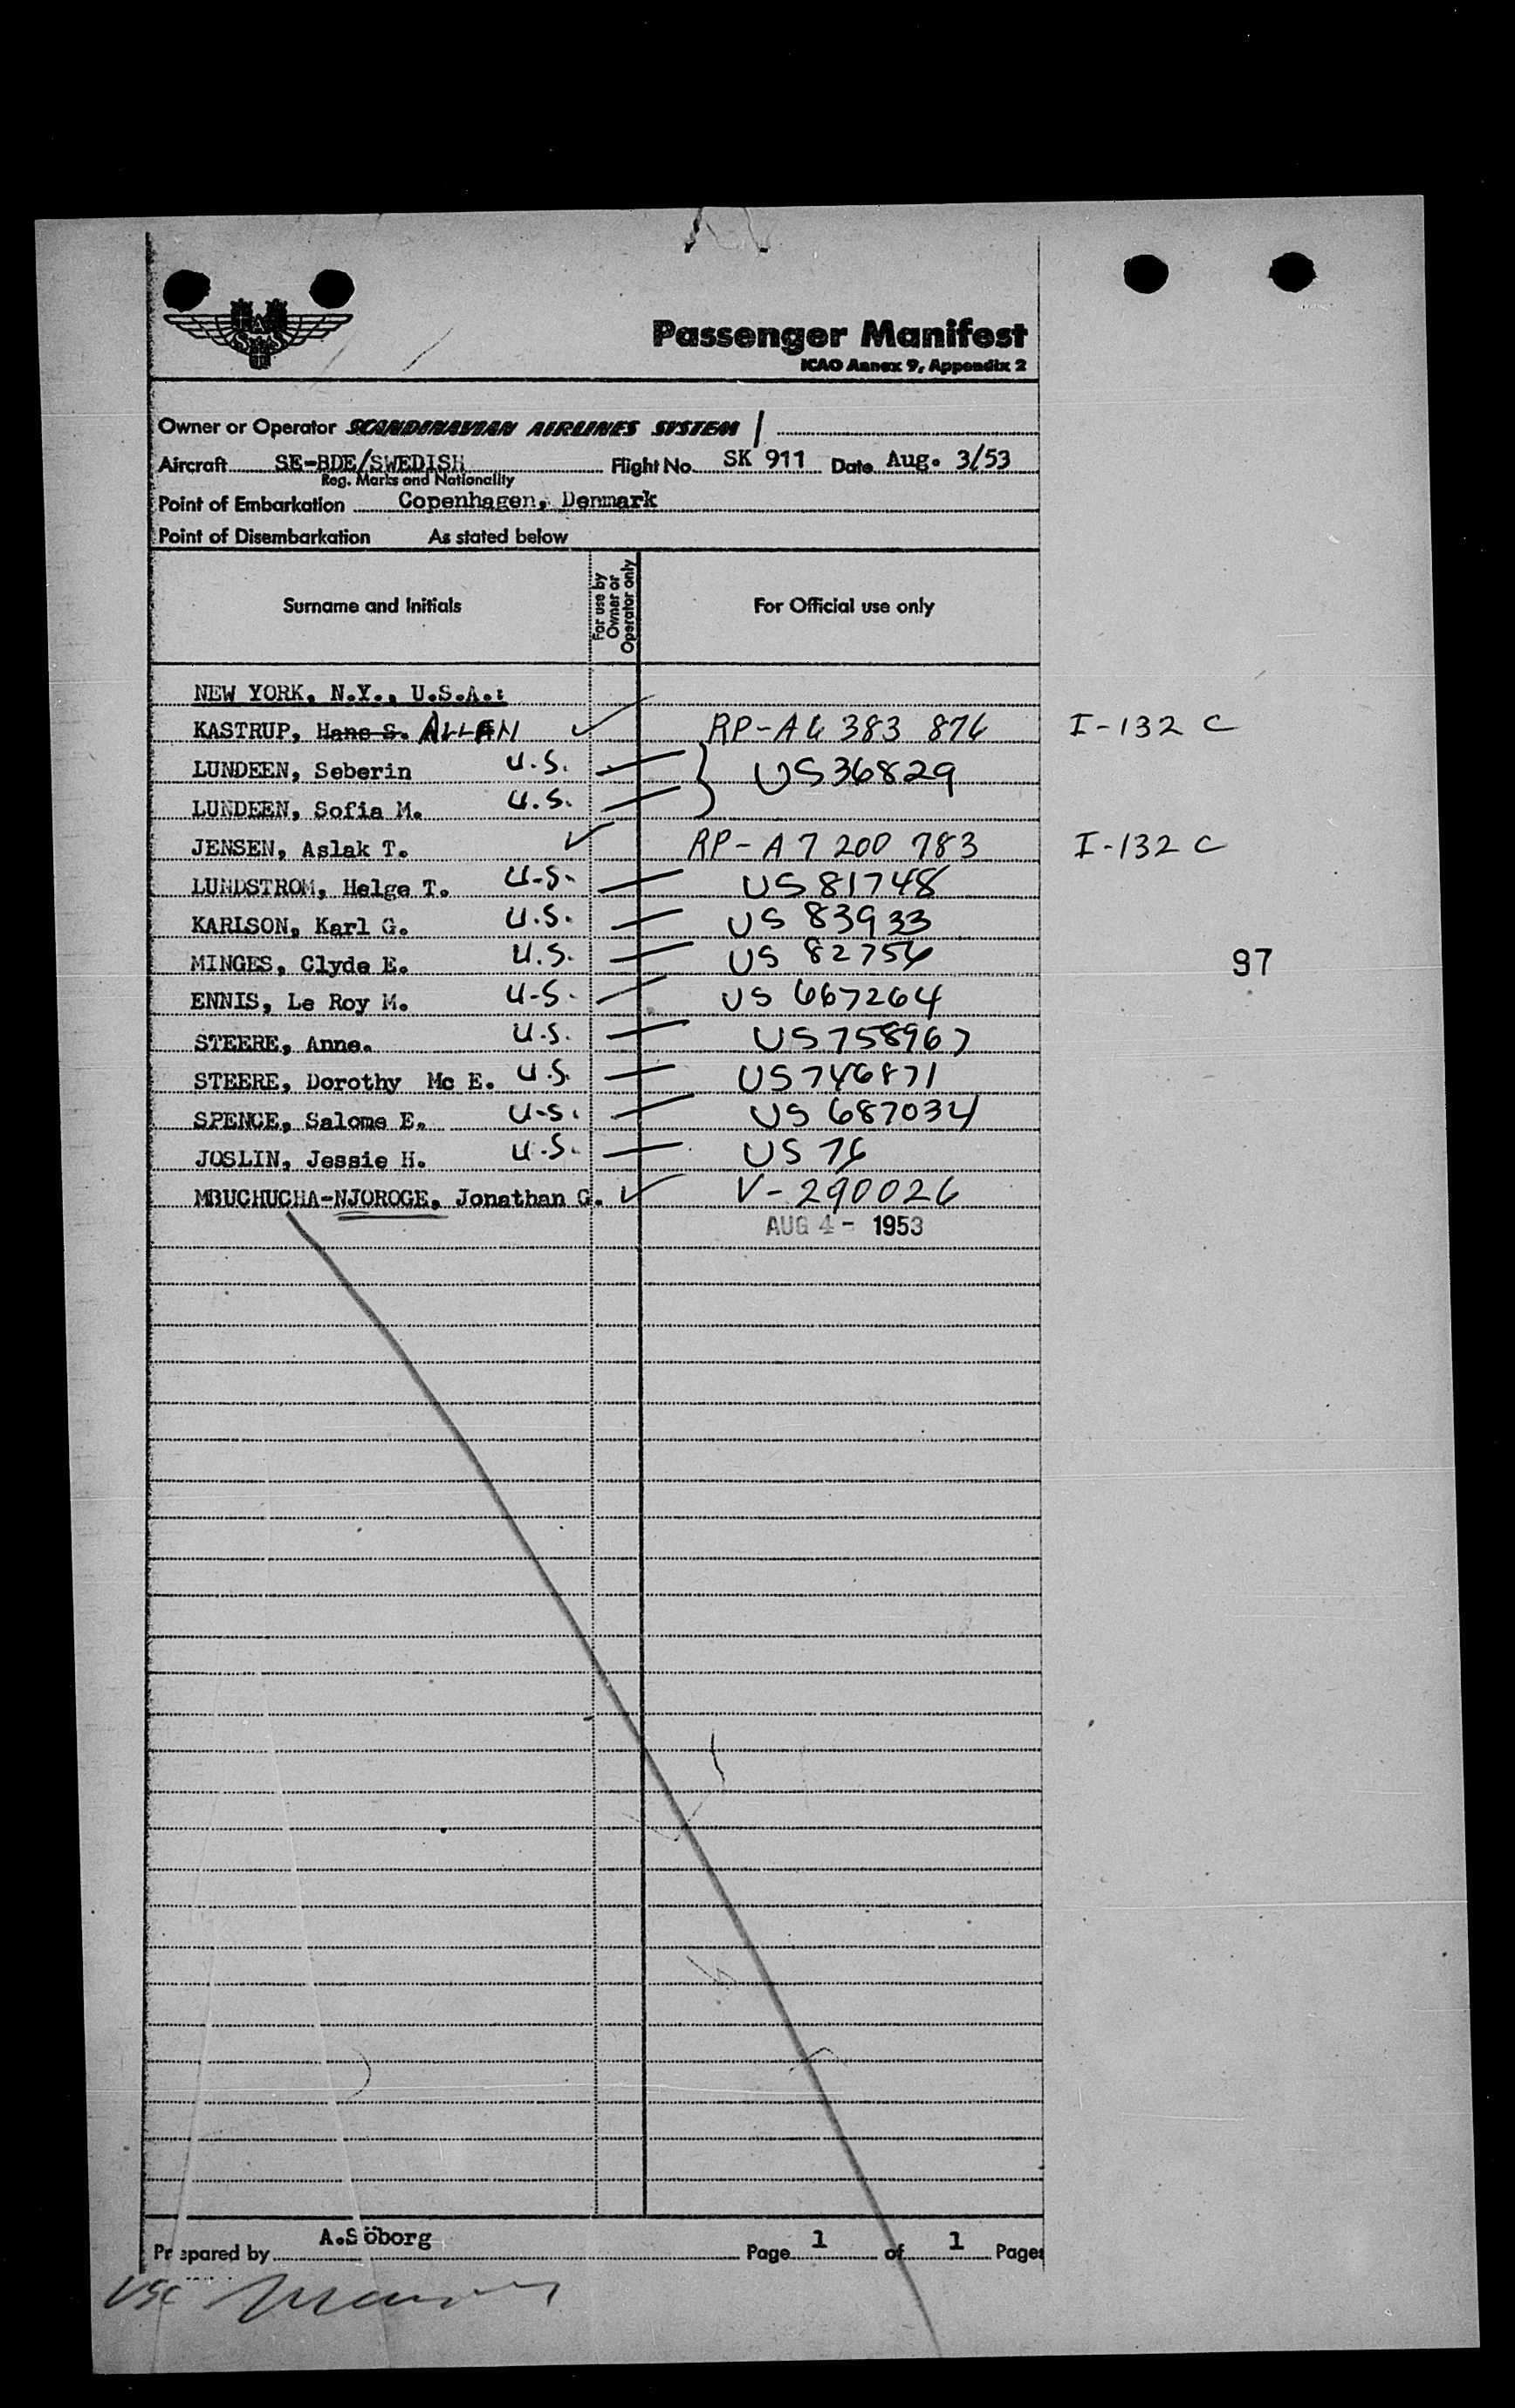 SAS
Passenger Manifest
ICAO Annex 9, Appendix 2
Owner or Operator SCANDINAVIAN AIRLINES SYSTEM
Aircraft SE-BDE/SWEDISH Flight No. SK 911 Date Aug. 3/53
Reg. Marks and Nationality
Point of Embarkation Copenhagen, Denmark
Point of Disembarkation As stated below
Surname and Initials For use by Owner or Operator only For Official use only
NEW YORK, N.Y., U.S.A.:
KASTRUP, Hans S. ALLEN RP-A6 383 876 I-132 C
LUNDEEN, Seberin U.S. US36829
LUNDEEN, Sofia M. U.S.
JENSEN, Aslak T. RP-A7 200 783 I-132 C
LUNDSTROM, Helge T. U.S. US 81748
KARLSON, Karl G. U.S. US 83933
MINGES, Clyde E. U.S. US 82756 97
ENNIS, Le Roy M. U.S. US 667264
STEERE, Anne. U.S. US758967
STEERE, Dorothy Mc E. U.S. US746871
SPENCE, Salome E. U.S. US 687034
JOSLIN, Jessie H. U.S. US 76
MBUCHUCHA-NJOROGE, Jonathan G. V-290026
AUG 4 - 1953
Prepared by A.Söborg Page 1 of 1 Pages